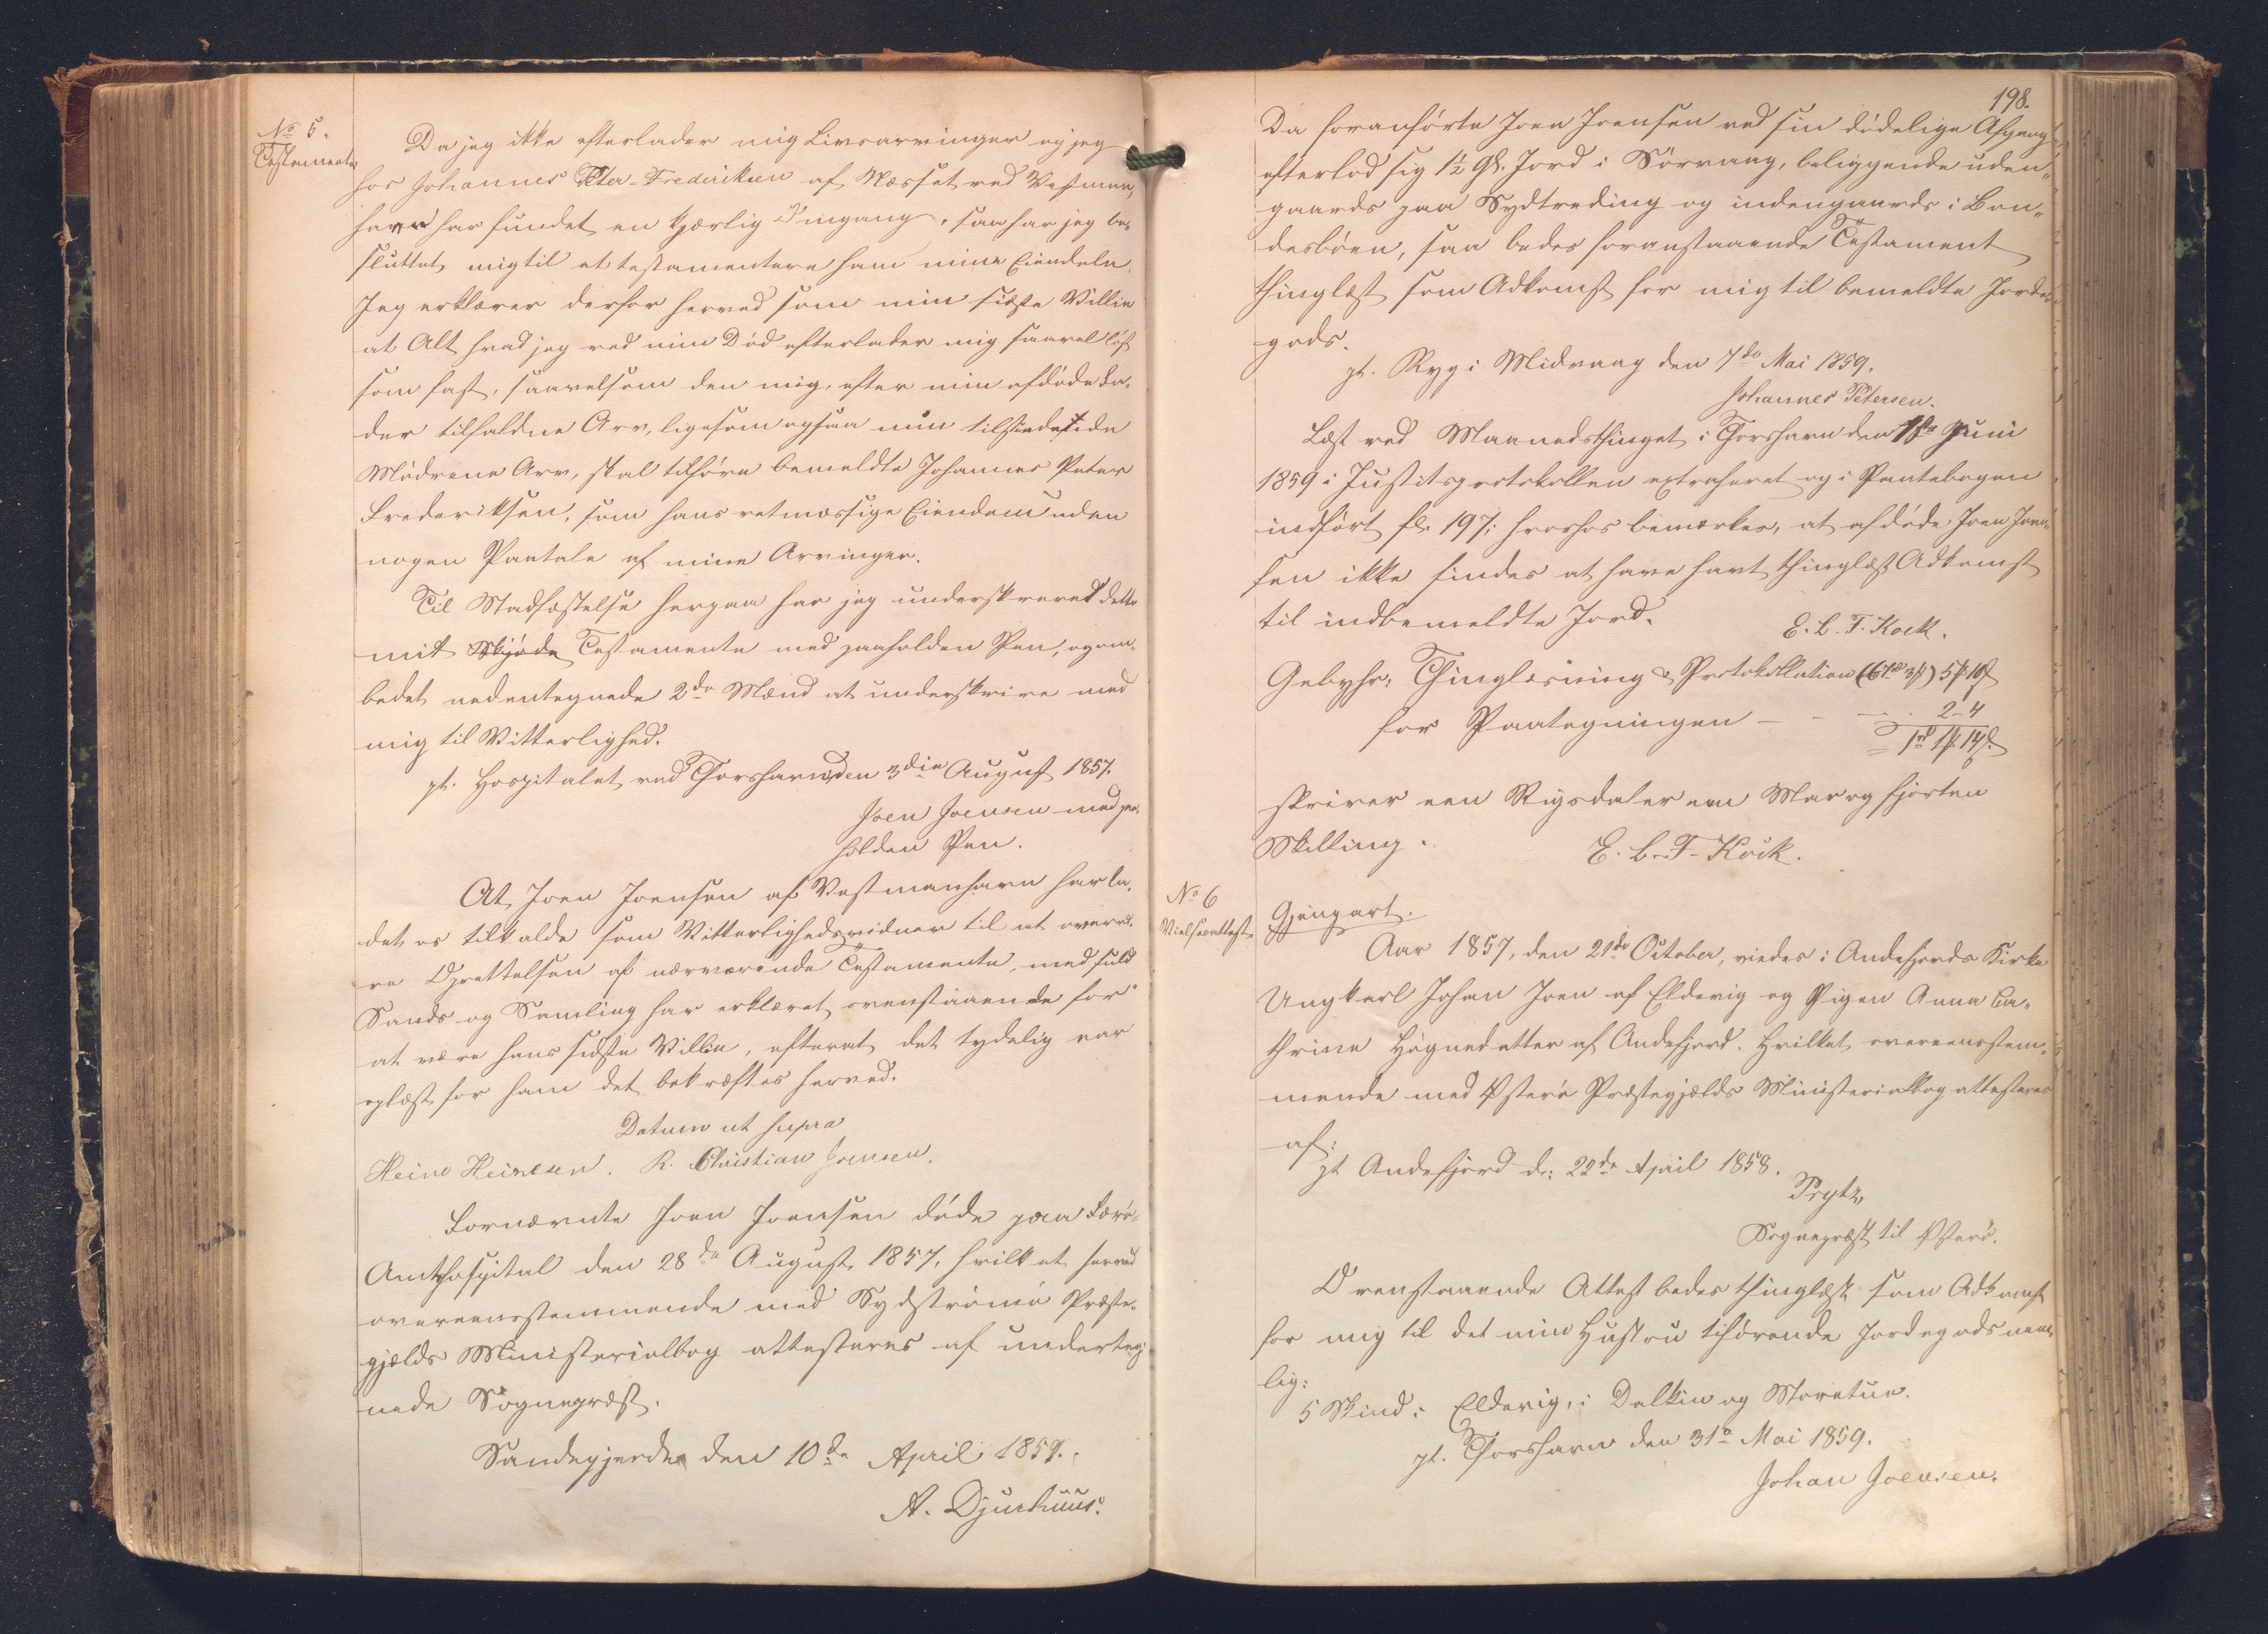 No 5.
Testamente
Da jeg ikke efterlader mig Livsarvinger og jeg
hos Johannes Peter Frederiksen af Næsset ved Vestman„
havn har fundet en kjærlig Omgang, saa har jeg be„
sluttet mig til at testamentere ham mine Eiendele.
Jeg erklærer derfor herved som min sidste Villie
at Alt hvad jeg ved min Død efterlader mig saavel løst
som fast, saavelsom den mig, efter min afdøde Fa„
der tilfaldne Arv, ligesom ogsaa min
Mødrene Arv, skal tilhøre bemeldte Johannes Peter
Frederiksen, som hans retmæssige Eiendom uden
nogen Paatale af mine Arvinger.
Til Stadfæstelse herpaa har jeg underskrevet dette
mit Skjøde Testamente med paaholden Pen, og om„
bedet nedentegnede 2de Mænd at underskrive med
mig til Vitterlighed.
pt. Hospitalet ved Thorshavn den 3die August 1857.
Joen Joensen med paa„
holden Pen.
At Joen Joensen af Vestmanhavn har la„
det os tilkalde som Vitterlighedsvidner til at overvæ„
re Oprettelsen af nærværende Testamente, med fuld
Sands og Samling har erklæret ovenstaaende for
at være hans sidste Villie, efterat det tydelig var
oplæst for ham det bekræftes herved.
Datum ut supra
Heine Heinesen. R. Christian Joensen.
Fornævnte Joen Joensen døde paa Færø
Amtshospital den 28de August 1857, hvilket herved
overeensstemmende med Sydstrømø Præste„
gjælds Ministerialbog attesteres af underteg„
nede Sognepræst.
Sandegjerde den 10de April 1859.
A. Djurhuus.
198.
Da foranførte Joen Joensen ved sin dødelige Afgang
efterlod sig 1½ Gl. Jord i Sørvaag, beliggende uden„
gaards paa Sydtreding og indengaards i Bon„
desbøen, saa bedes foranstaaende Testament
thinglæst som Adkomst for mig til bemeldte Jorde„
gods.
pt. Ryg i Midvaag den 7de Mai 1859.
Johannes Petersen.
Læst ved Maanedsthinget i Thorshavn den 1ste Juni
1859 i Justitsprotokollen extraheret og i Pantebogen
indført fl. 197; hvorhos bemærkes, at afdøde Joen Joen„
sen ikke findes at have havt thinglæst Adkomst
til indbemeldte Jord.
E. L. T. Kock.
Gebyhr: Thinglæsning & Protokollation 5 10
for Paategningen - - - 2-4
1rd 1 14
skriver een Rigsdaler een Mark og fjorten
Skilling.
E. L. T. Kock.
No 6
Vielsesattest
Gjenpart.
Aar 1857, den 21de October, viedes i Andefjords Kirke
Ungkarl Johan Joen af Eldevig og Pigen Anna Ca„
thrine Høgnedatter af Andefjord. Hvilket overeensstem„
mende med Østerø Præstegjælds Ministerialbog attesteres
af:
pt Andefjord d: 22de April 1858.
Prytz,
Sognepræst til Østerø.
Ovenstaaende Attest bedes thinglæst som Adkomst
for mig til det min Hustru tilhørende Jordegods nem„
lig:
5 Skind i Eldevig, i Dalkin og Storetue.
pt. Thorshavn den 31te Mai 1859.
Johan Joensen.